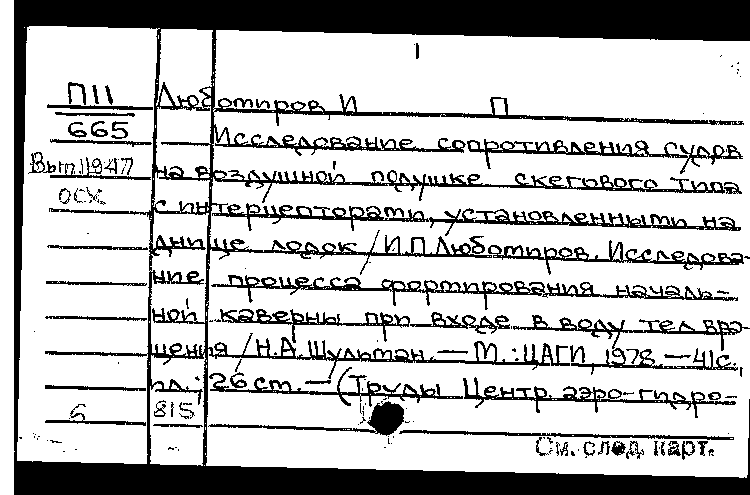 1
П11 Любомиров, И П
665 Исследование сопротивления судов
Вып.1947 на воздушной подушке скегового типа
ОСХ с интерцепторами, установленными на
днище лодок / И.П.Любомиров. Исследова-
ние процесса формирования началь-
ной каверны при входе в воду тел вра-
щения / Н.А.Шульман. — М.: ЦАГИ, 1978. — 41с.,
ил.; 26 см. — (Труды Центр. аэро-гидро-
6 815
См. след. карт.